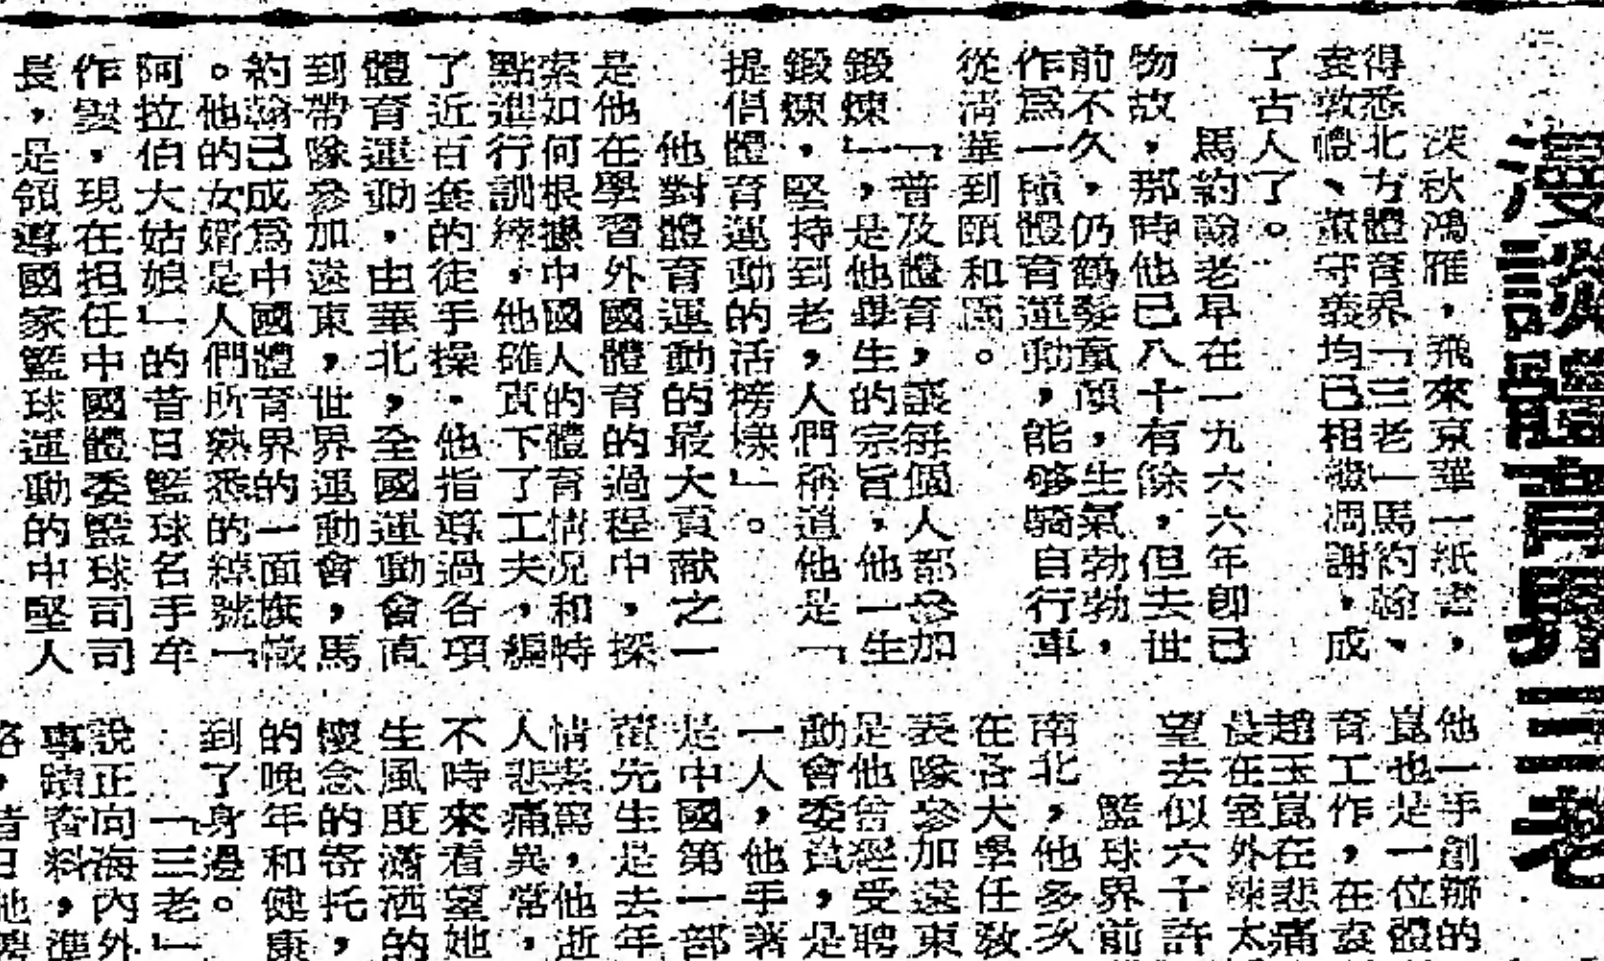 漫談體育界三老
深秋鴻雁，飛來京華一紙書，
得悉北方體育界「三老」馬約翰、
袁敦禮、董守義均已相繼凋謝，成
了古人了。
馬約翰老早在一九六六年卽已
物故，那時他已八十有餘，但去世
前不久，仍鶴髮童顏，生氣勃勃，
作爲一種體育運動，能够騎自行車
從清華到頤和園。
「普及體育，讓每個人都參加
鍛煉」，是他畢生的宗旨，他一生
鍛煉，堅持到老，人們稱道他是「
提倡體育運動的活榜樣」。
他對體育運動的最大貢献之一
是他在學習外國體育的過程中，探
索如何根據中國人的體育情况和時
點進行訓練，他確實下了工夫，編
了近百套的徒手操．他指導過各項
體育運動，由華北，全國運動會直
到帶隊參加遠東，世界運動會，馬
約翰已成爲中國體育界的一面旗幟
。他的女婿是人們所熟悉的綽號「
阿拉伯大姑娘」的昔日籃球名手牟
作雲，現在担任中國體委籃球司司
長，是領導國家籃球運動的中堅人
他一手創辦的
崑也是一位體
育工作，在袁
趙玉崑在悲痛
晨在室外練太
望去似六十許
籃球界前
南北，他多次
在各大學任教
表隊參加遠東
是他曾經受聘
動會委員，是
一人，他手著
是中國第一部
董先生是去年
情素篤，他逝
人悲痛異常，
不時來看望她
生風度瀟洒的
懷念的寄托，
的晚年和健康
到了身邊。
「三老」
說正向海內外
事蹟資料，準
昔日他